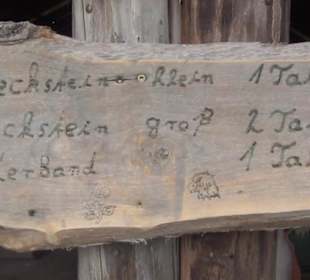 echstein klein 1 Ta
chstein groß 2 Ta
erband 1 Ta